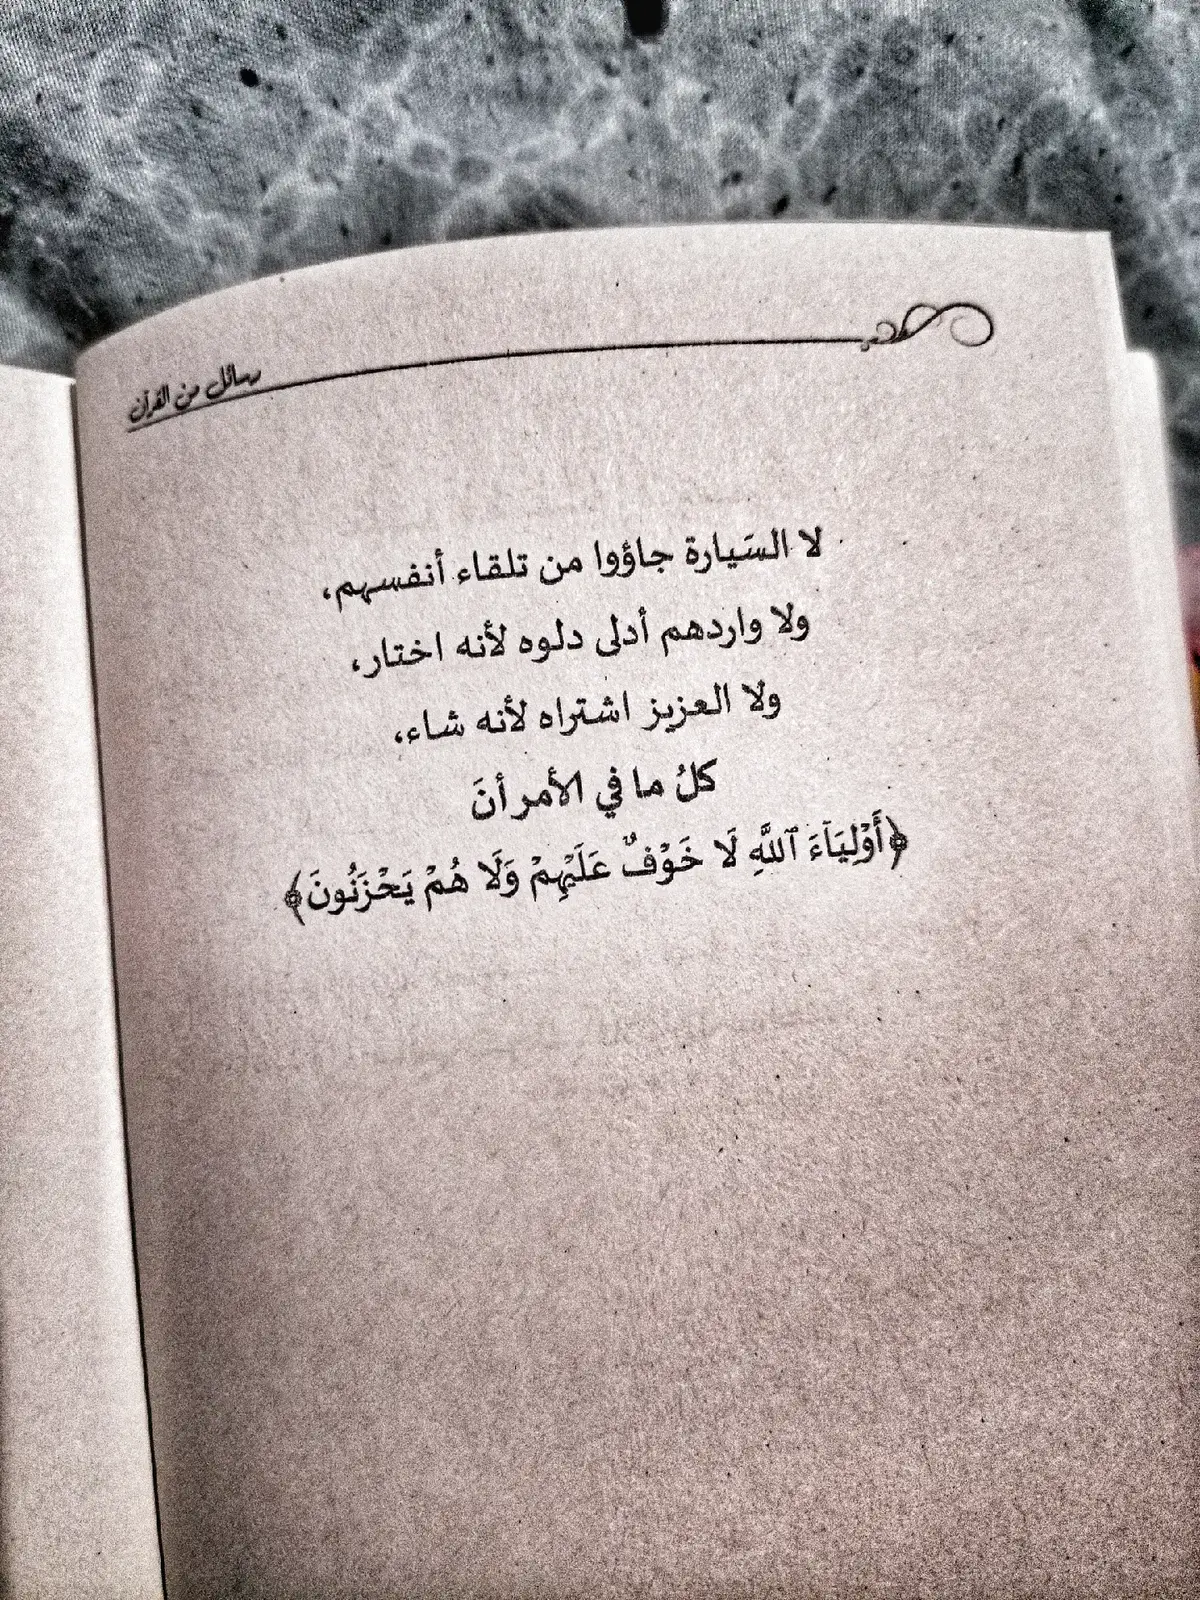 رسائل من القرآن
لا السَيارة جاؤوا من تلقاء أنفسهم،
ولا واردهم أدلى دلوه لأنه اختار،
ولا العزيز اشتراه لأنه شاء،
كلُ ما في الأمر أنَ
﴿أَوْلِيَآءَ ٱللَّهِ لَا خَوْفٌ عَلَيْهِمْ وَلَا هُمْ يَحْزَنُونَ﴾